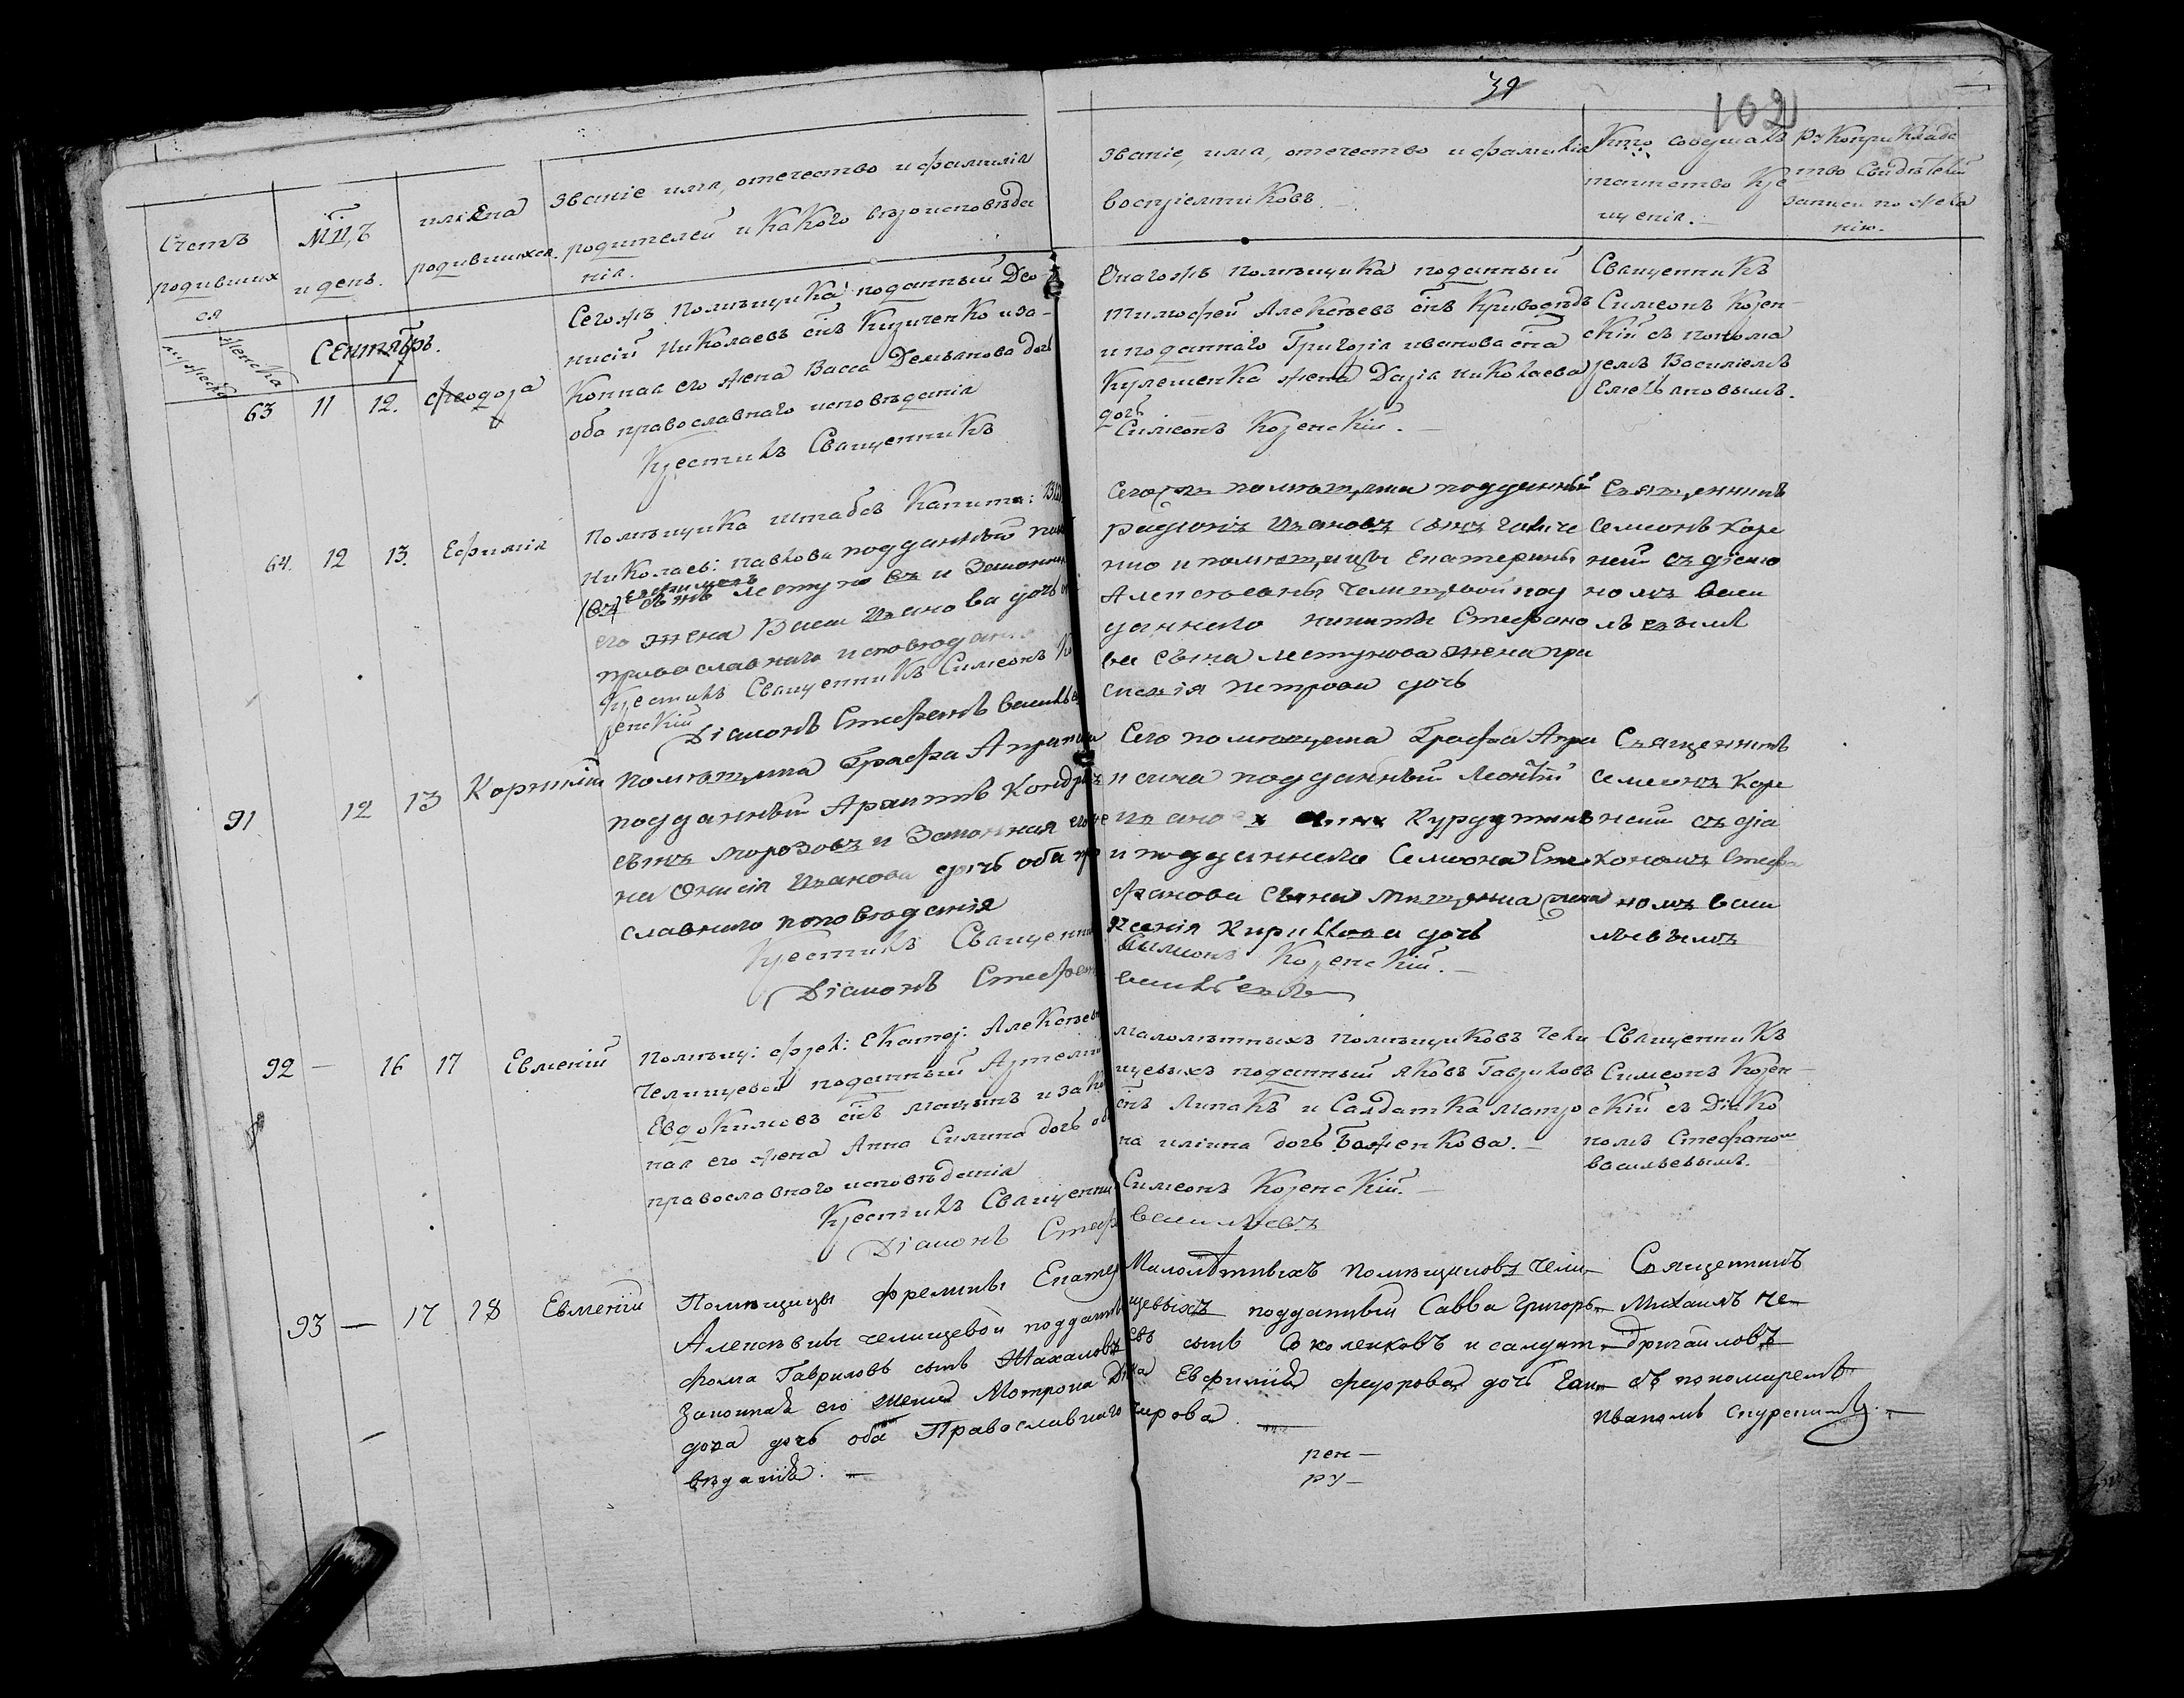 39
102
Счетъ
родивших
ся
мужеска
женска
М͠ц̃ъ
и день.
Сентябрь.
имена
родившихся.
Званіе имя, отечество и фамилія
родителей и какого вѣроисповѣда
нія.
Званіе, имя, отечество и фамилія
воспріемниковъ.
Кто совершалъ
таинство Кре
щенія.
Рукоприклада
тво Свидѣтелей
записи по жела
нію.
63 11 12. Феодора
Сегожъ Помѣщика поданный Део
нисій Николаевъ сн͠ъ Кириченко и за-
конная его жена Васса Демьянова доч
оба православнаго исповѣданія
Крестилъ Священникъ
Онагожъ помѣщика поданный
Тимофей Алексѣевъ сн͠ъ
и поданнаго Григорія иванова сна
Кулешенка жена Дарія николаева
дочь
Симеонъ Коренскій.
Священникъ
Симеонъ Корен-
скій съ понома
ремъ Василіемъ
Емельяновымъ.
64. 12 13. Ефимія
Помѣщика штабсъ Капита:
Николаев: Павлова подданный
сынъ и Законная
его жена Васса Иванова дочь
православнаго исповѣданія
Крестилъ Священникъ Симеонъ Ко
ренскій
Діаконъ Стефанъ Василье
Сегожъ помѣщика подданный
Родіонъ Ивановъ сынъ
и помѣщицы Екатерины
Алексѣевны Челищевой под
даннаго никиты Стефано
ва сына жена
Петрова дочь
Священникъ
Семеонъ Коре
нскій съ діако
номъ Васи
льевымъ
91 12 13 Корнилій
помѣщика Графа Апракси
подданный Архипъ Кондра
сынъ Морозовъ и Законная его же
на Онисія Иванова дочь оба пр
славнаго исповѣданія
Крестилъ Священни
Діаконъ Стефан
Сего помѣщика Графа Апра
ксина подданный Леонтій
Иванов сынъ Курдушинъ
и подданнаго Семіона Сте
фанова сына Мищенка жена
Ксенія Кирилова дочь
Симіонъ Коренскій.
Васильевъ
Священникъ
Семеонъ Коре
нскій съ діа
кономъ Стефа
номъ Васи
льевымъ
92 — 16 17 Евменій
Помѣщ: Фрел: Екатер: Алексѣев
Челищевой поданный Артемій
Евдокимовъ сн͠ъ Мацынъ и зако
ная его жена Анна Силина дочь об
православнаго исповѣданія
Крестилъ Священни
Діаконъ Стеф
малолѣтныхъ помѣщиковъ Чели
щевыхъ поданный Яковъ Гавриловъ
сн͠ъ Липакъ и Салдатка Матро
на илінна дочь Баженкова.—
Симеонъ Коренскій.—
Васильевъ
Священникъ
Симеонъ Корен-
скій съ Діяко
номъ Стефаном
васильевымъ.
93 — 17 18 Евменій
Помѣщицы Фрелины Екатер
Алексѣвны Челищевой поддан
Фома Гавриловъ сынъ Жихаловъ
Законная его жена Мотрона Д
дова дочь оба Православнаго
вѣданія. —
Малолѣтныхъ Помѣщиковъ Чели-
щевыхъ подданный Савва Григорь-
евъ сынъ Соколенковъ и салдат-
ка Евфимія Федорова дочь
Священникъ
Михаилъ Че-
съ пономаремъ
Иваномъ
рен —
ру —